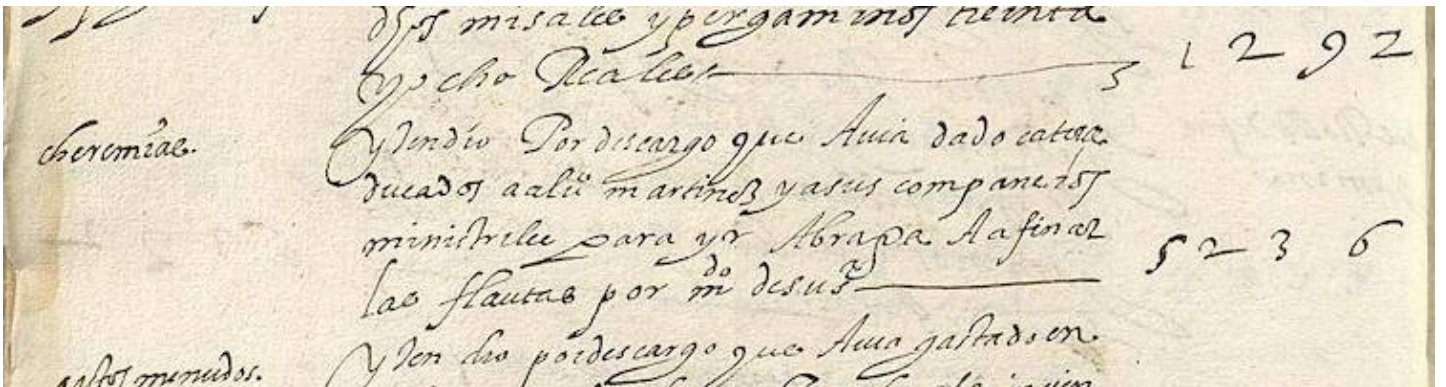 misales y pergaminos treinta
yocho Reales 1 2 9 2
cheremias.
Yten dio Por descargo que Avia dado catorze
ducados a alº martinez y a sus companeros
ministriles para yr A braga A afinar
las flautas por mdo de su sª 5 2 3 6
Yten dio por descargo que Avia gastado en
gastos menudos.